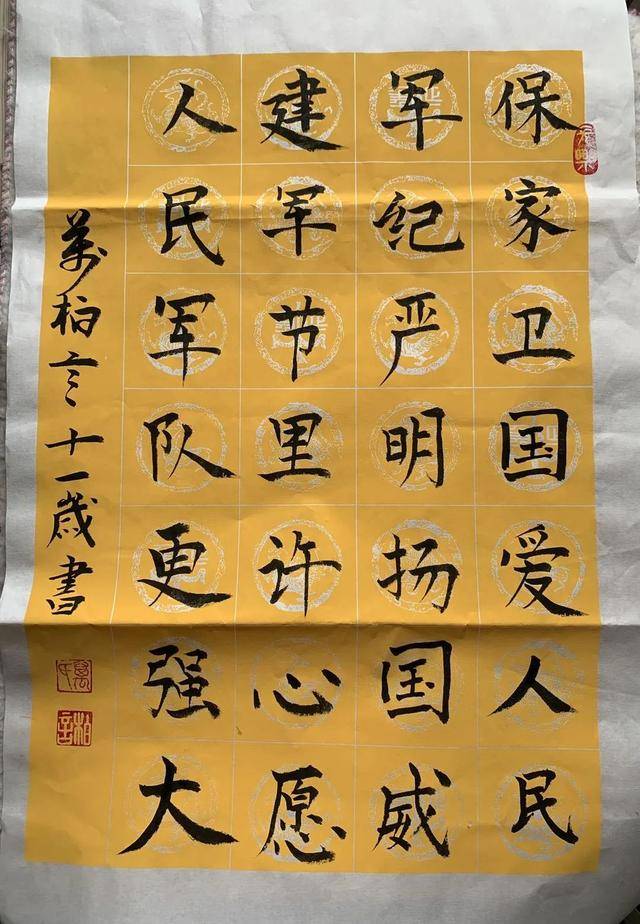 保家卫国爱人民
军纪严明扬国威
建军节里许心愿
人民军队更强大
萬柏言十一歲書